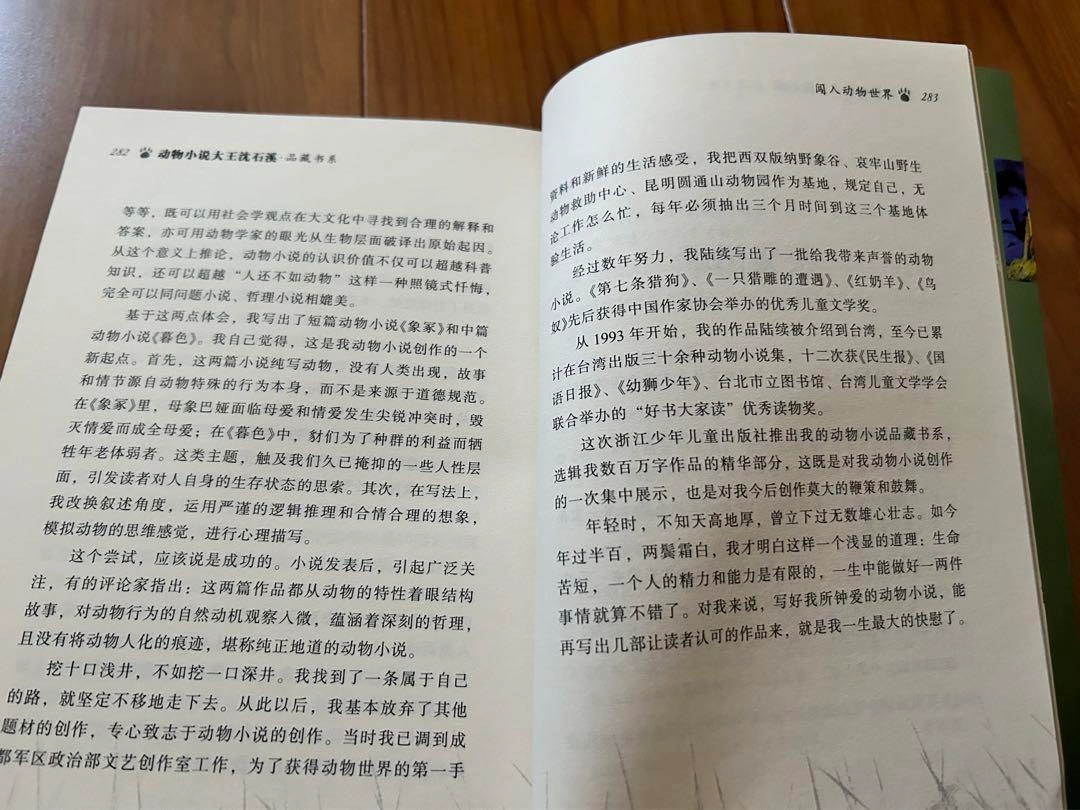 282 动物小说大王沈石溪·品藏书系
等等，既可以用社会学观点在大文化中寻找到合理的解释和
答案，亦可用动物学家的眼光从生物层面破译出原始起因。
从这个意义上推论，动物小说的认识价值不仅可以超越科普
知识，还可以超越“人还不如动物”这样一种照镜式忏悔，
完全可以同问题小说、哲理小说相媲美。
基于这两点体会，我写出了短篇动物小说《象冢》和中篇
动物小说《暮色》。我自己觉得，这是我动物小说创作的一个
新起点。首先，这两篇小说纯写动物，没有人类出现，故事
和情节源自动物特殊的行为本身，而不是来源于道德规范。
在《象冢》里，母象巴娅面临母爱和情爱发生尖锐冲突时，毁
灭情爱而成全母爱；在《暮色》中，豺们为了种群的利益而牺
牲年老体弱者。这类主题，触及我们久已掩抑的一些人性层
面，引发读者对人自身的生存状态的思索。其次，在写法上，
我改换叙述角度，运用严谨的逻辑推理和合情合理的想象，
模拟动物的思维感觉，进行心理描写。
这个尝试，应该说是成功的。小说发表后，引起广泛关
注，有的评论家指出：这两篇作品都从动物的特性着眼结构
故事，对动物行为的自然动机观察入微，蕴涵着深刻的哲理，
且没有将动物人化的痕迹，堪称纯正地道的动物小说。
挖十口浅井，不如挖一口深井。我找到了一条属于自己
的路，就坚定不移地走下去。从此以后，我基本放弃了其他
题材的创作，专心致志于动物小说的创作。当时我已调到成
都军区政治部文艺创作室工作，为了获得动物世界的第一手
闯入动物世界 283
资料和新鲜的生活感受，我把西双版纳野象谷、哀牢山野生
动物救助中心、昆明圆通山动物园作为基地，规定自己，无
论工作怎么忙，每年必须抽出三个月时间到这三个基地体
验生活。
经过数年努力，我陆续写出了一批给我带来声誉的动物
小说。《第七条猎狗》、《一只猎雕的遭遇》、《红奶羊》、《鸟
奴》先后获得中国作家协会举办的优秀儿童文学奖。
从1993年开始，我的作品陆续被介绍到台湾，至今已累
计在台湾出版三十余种动物小说集，十二次获《民生报》、《国
语日报》、《幼狮少年》、台北市立图书馆、台湾儿童文学学会
联合举办的“好书大家读”优秀读物奖。
这次浙江少年儿童出版社推出我的动物小说品藏书系，
选辑我数百万字作品的精华部分，这既是对我动物小说创作
的一次集中展示，也是对我今后创作莫大的鞭策和鼓舞。
年轻时，不知天高地厚，曾立下过无数雄心壮志。如今
年过半百，两鬓霜白，我才明白这样一个浅显的道理：生命
苦短，一个人的精力和能力是有限的，一生中能做好一两件
事情就算不错了。对我来说，写好我所钟爱的动物小说，能
再写出几部让读者认可的作品来，就是我一生最大的快慰了。